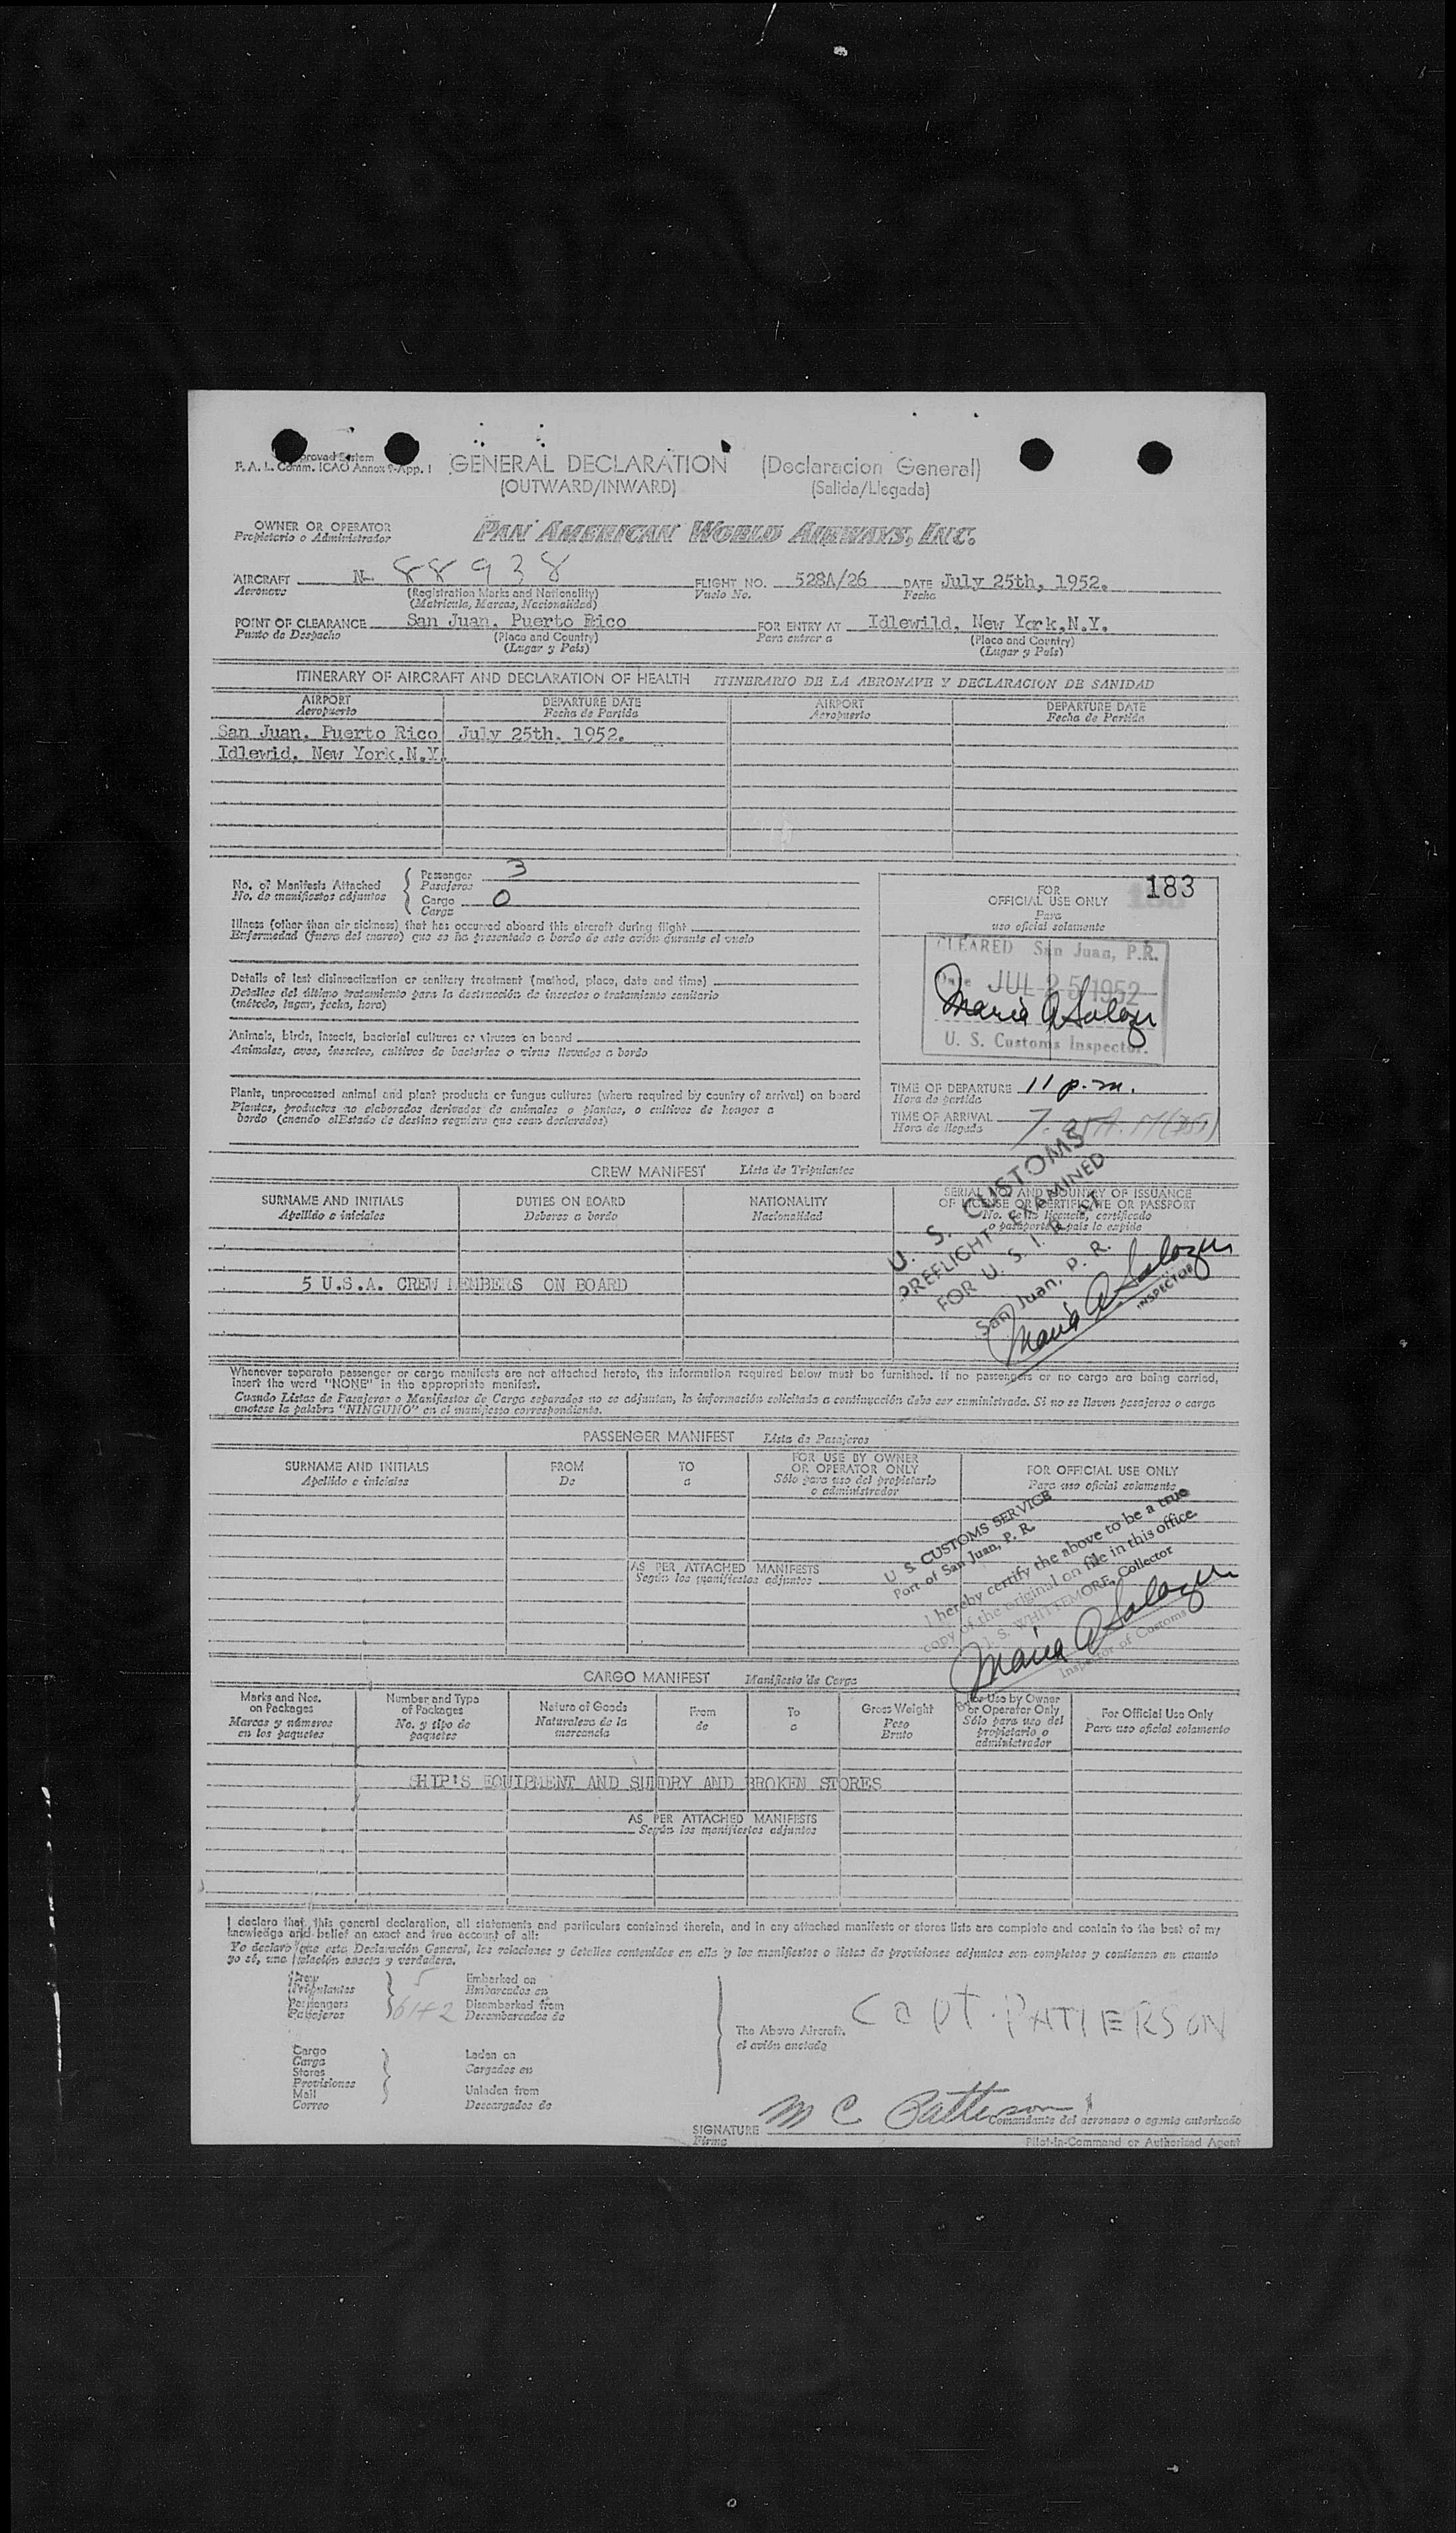 GENERAL DECLARATION (Declaracion General)
(OUTWARD/INWARD) (Salida/Llegada)
F. A. L. Comm. ICAO Annex 9-App. 1
OWNER OR OPERATOR PAN AMERICAN WORLD AIRWAYS, INC.
Propietario o Administrador
AIRCRAFT N- 88938 FLIGHT NO. 528A/26 DATE July 25th, 1952.
Aeronave (Registration Marks and Nationality) Vuelo No. Fecha
(Matricula, Marcas, Nacionalidad)
POINT OF CLEARANCE San Juan, Puerto Rico FOR ENTRY AT Idlewild, New York,N.Y.
Punto de Despacho (Place and Country) Para entrar a (Place and Country)
(Lugar y País) (Lugar y País)
ITINERARY OF AIRCRAFT AND DECLARATION OF HEALTH ITINERARIO DE LA AERONAVE Y DECLARACION DE SANIDAD
AIRPORT DEPARTURE DATE AIRPORT DEPARTURE DATE
Aeropuerto Fecha de Partida Aeropuerto Fecha de Partida
San Juan, Puerto Rico July 25th, 1952.
Idlewid, New York,N.Y.
No. of Manifests Attached Passenger 3
No. de manifiestos adjuntos Pasajeros
Cargo 0
Carga
Illness (other than air sickness) that has occurred aboard this aircraft during flight
Enfermedad (fuera del mareo) que se ha presentado a bordo de este avión durante el vuelo
Details of last disinsectization or sanitary treatment (method, place, date and time)
Detalles del último tratamiento para la destrucción de insectos o tratamiento sanitario
(método, lugar, fecha, hora)
Animals, birds, insects, bacterial cultures or viruses on board
Animales, aves, insectos, cultivos de bacterias o virus llevados a bordo
Plants, unprocessed animal and plant products or fungus cultures (where required by country of arrival) on board
Plantas, productos no elaborados derivados de animales o plantas, o cultivos de hongos a
bordo (cuando el Estado de destino requiera que sean declarados)
183
FOR
OFFICIAL USE ONLY
Para
uso oficial solamente
CLEARED San Juan, P.R.
Date JUL 25 1952
Maria A Salazar
U. S. Customs Inspector.
TIME OF DEPARTURE 11 p.m.
Hora de partida
TIME OF ARRIVAL
Hora de llegada
CREW MANIFEST Lista de Tripulantes
SURNAME AND INITIALS DUTIES ON BOARD NATIONALITY SERIAL NO. AND COUNTRY OF ISSUANCE
Apellido e iniciales Deberes a bordo Nacionalidad OF LICENSE OR CERTIFICATE OR PASSPORT
No. de la licencia, certificado
o pasaporte y país lo expide
5 U.S.A. CREW MEMBERS ON BOARD
U. S. CUSTOMS
PREFLIGHT EXAMINED
FOR U. S. I. R. AT
San Juan, P. R.
Maria A Salazar
INSPECTOR
Whenever separate passenger or cargo manifests are not attached hereto, the information required below must be furnished. If no passengers or no cargo are being carried,
insert the word "NONE" in the appropriate manifest.
Cuando Listas de Pasajeros o Manifiestos de Carga separados no se adjuntan, la información solicitada a continuación debe ser suministrada. Si no se llevan pasajeros o carga
anotese la palabra "NINGUNO" en el manifiesto correspondiente.
PASSENGER MANIFEST Lista de Pasajeros
SURNAME AND INITIALS FROM TO FOR USE BY OWNER FOR OFFICIAL USE ONLY
Apellido e iniciales De a OR OPERATOR ONLY Para uso oficial solamente
Sólo para uso del propietario
o administrador
AS PER ATTACHED MANIFESTS
Según los manifiestos adjuntos
U. S. CUSTOMS SERVICE
Port of San Juan, P. R.
I hereby certify the above to be a true
copy of the original on file in this office.
I. S. WHITTEMORE, Collector
Maria A Salazar
Inspector of Customs
CARGO MANIFEST Manifiesto de Carga
Marks and Nos. Number and Type Nature of Goods From To Gross Weight For Use by Owner For Official Use Only
on Packages of Packages Naturaleza de la de a Peso or Operator Only Para uso oficial solamente
Marcas y números No. y tipo de mercancia Bruto Sólo para uso del
en los paquetes paquetes propietario o
administrador
SHIP'S EQUIPMENT AND SUNDRY AND BROKEN STORES
AS PER ATTACHED MANIFESTS
Según los manifiestos adjuntos
I declare that this general declaration, all statements and particulars contained therein, and in any attached manifests or stores lists are complete and contain to the best of my
knowledge and belief an exact and true account of all:
Yo declaro que esta Declaración General, las relaciones y detalles contenidos en ella y los manifiestos o listas de provisiones adjuntos son completos y contienen en cuanto
yo sé, una relación exacta y verdadera.
Crew 5 Embarked on
Tripulantes Embarcados en
Passengers 61+2 Disembarked from
Pasajeros Desembarcados de
Cargo Laden on
Carga Cargados en
Stores
Provisiones
Mail Unladen from
Correo Descargados de
The Above Aircraft.
el avión anotado
CAPT. PATTERSON
SIGNATURE M C Patterson
Firma Comandante del aeronave o agente autorizado
Pilot-in-Command or Authorized Agent